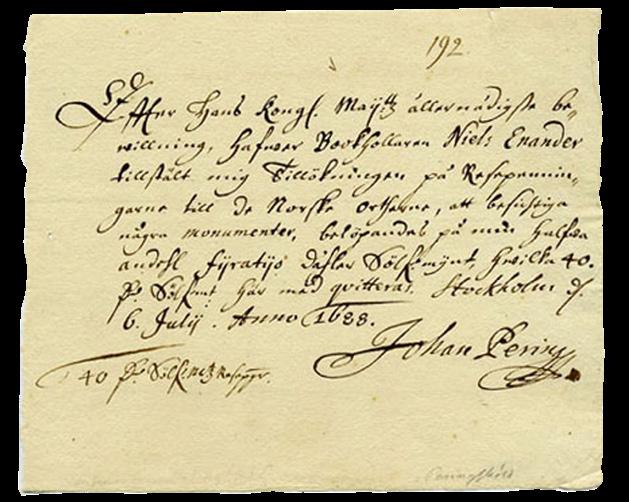 192.
Effter Hans Kongl. Maij:tz allernådigste be-
willning, hafwer Bookhollaren Niels Enander
tillstält mig Tillökningen på Resepennin-
garne till de Norske ortherne, att besichtiga
några monumenter, belöpandes på min halfwa
andehl fyratijo dahler Sölf:mynt, hwilka 40.
Sölf:mt här med qvitteras. Stockholm d.
6. Julij. Anno 1688.
Johan Pering
40 Sölf:mt Resepgr.